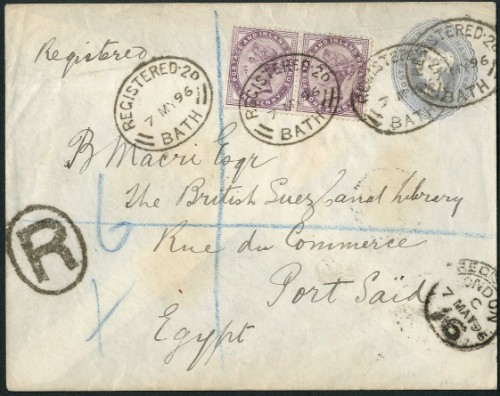 Registered
POSTAGE AND INLAND
POSTAGE AND INLAND
REGISTERED·20
7 MY 96
BATH
REGISTERED·20
BATH
REGISTERED·20
BATH
REGISTERED·20
96
BATH
B Macri Esqr
The British Suez Canal Library
Rue du Commerce
Port Saïd
Egypt
R
LONDON
C
7 MAY 96
16